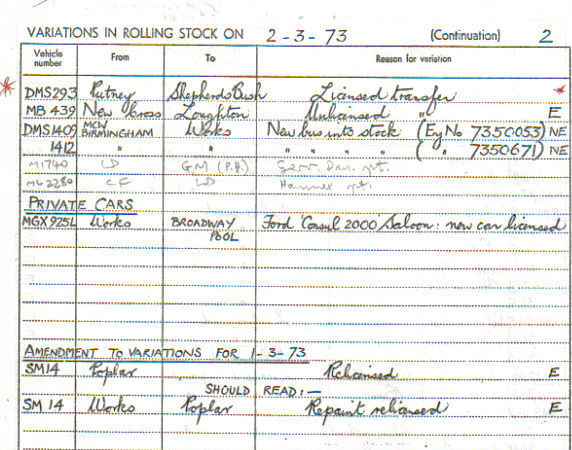 VARIATIONS IN ROLLING STOCK ON 2-3-73 (Continuation) 2
Vehicle number From To Reason for variation
* DMS293 Putney Shepherds Bush Licensed transfer *
MB 439 New Cross Loughton Unlicensed " E
DMS1409 MCW BIRMINGHAM Works New bus into stock (Eng No 7350053) NE
1412 " " " " " " ( " 7350671) NE
M1740 LD GM (P.H.)
M62280 CF LD Hammer
PRIVATE CARS
MGX925L Works BROADWAY POOL Ford 'Consul 2000 Saloon: new car licensed
AMENDMENT TO VARIATIONS FOR 1-3-73
SM14 Poplar Relicensed E
SHOULD READ:-
SM 14 Works Poplar Repaint relicensed E